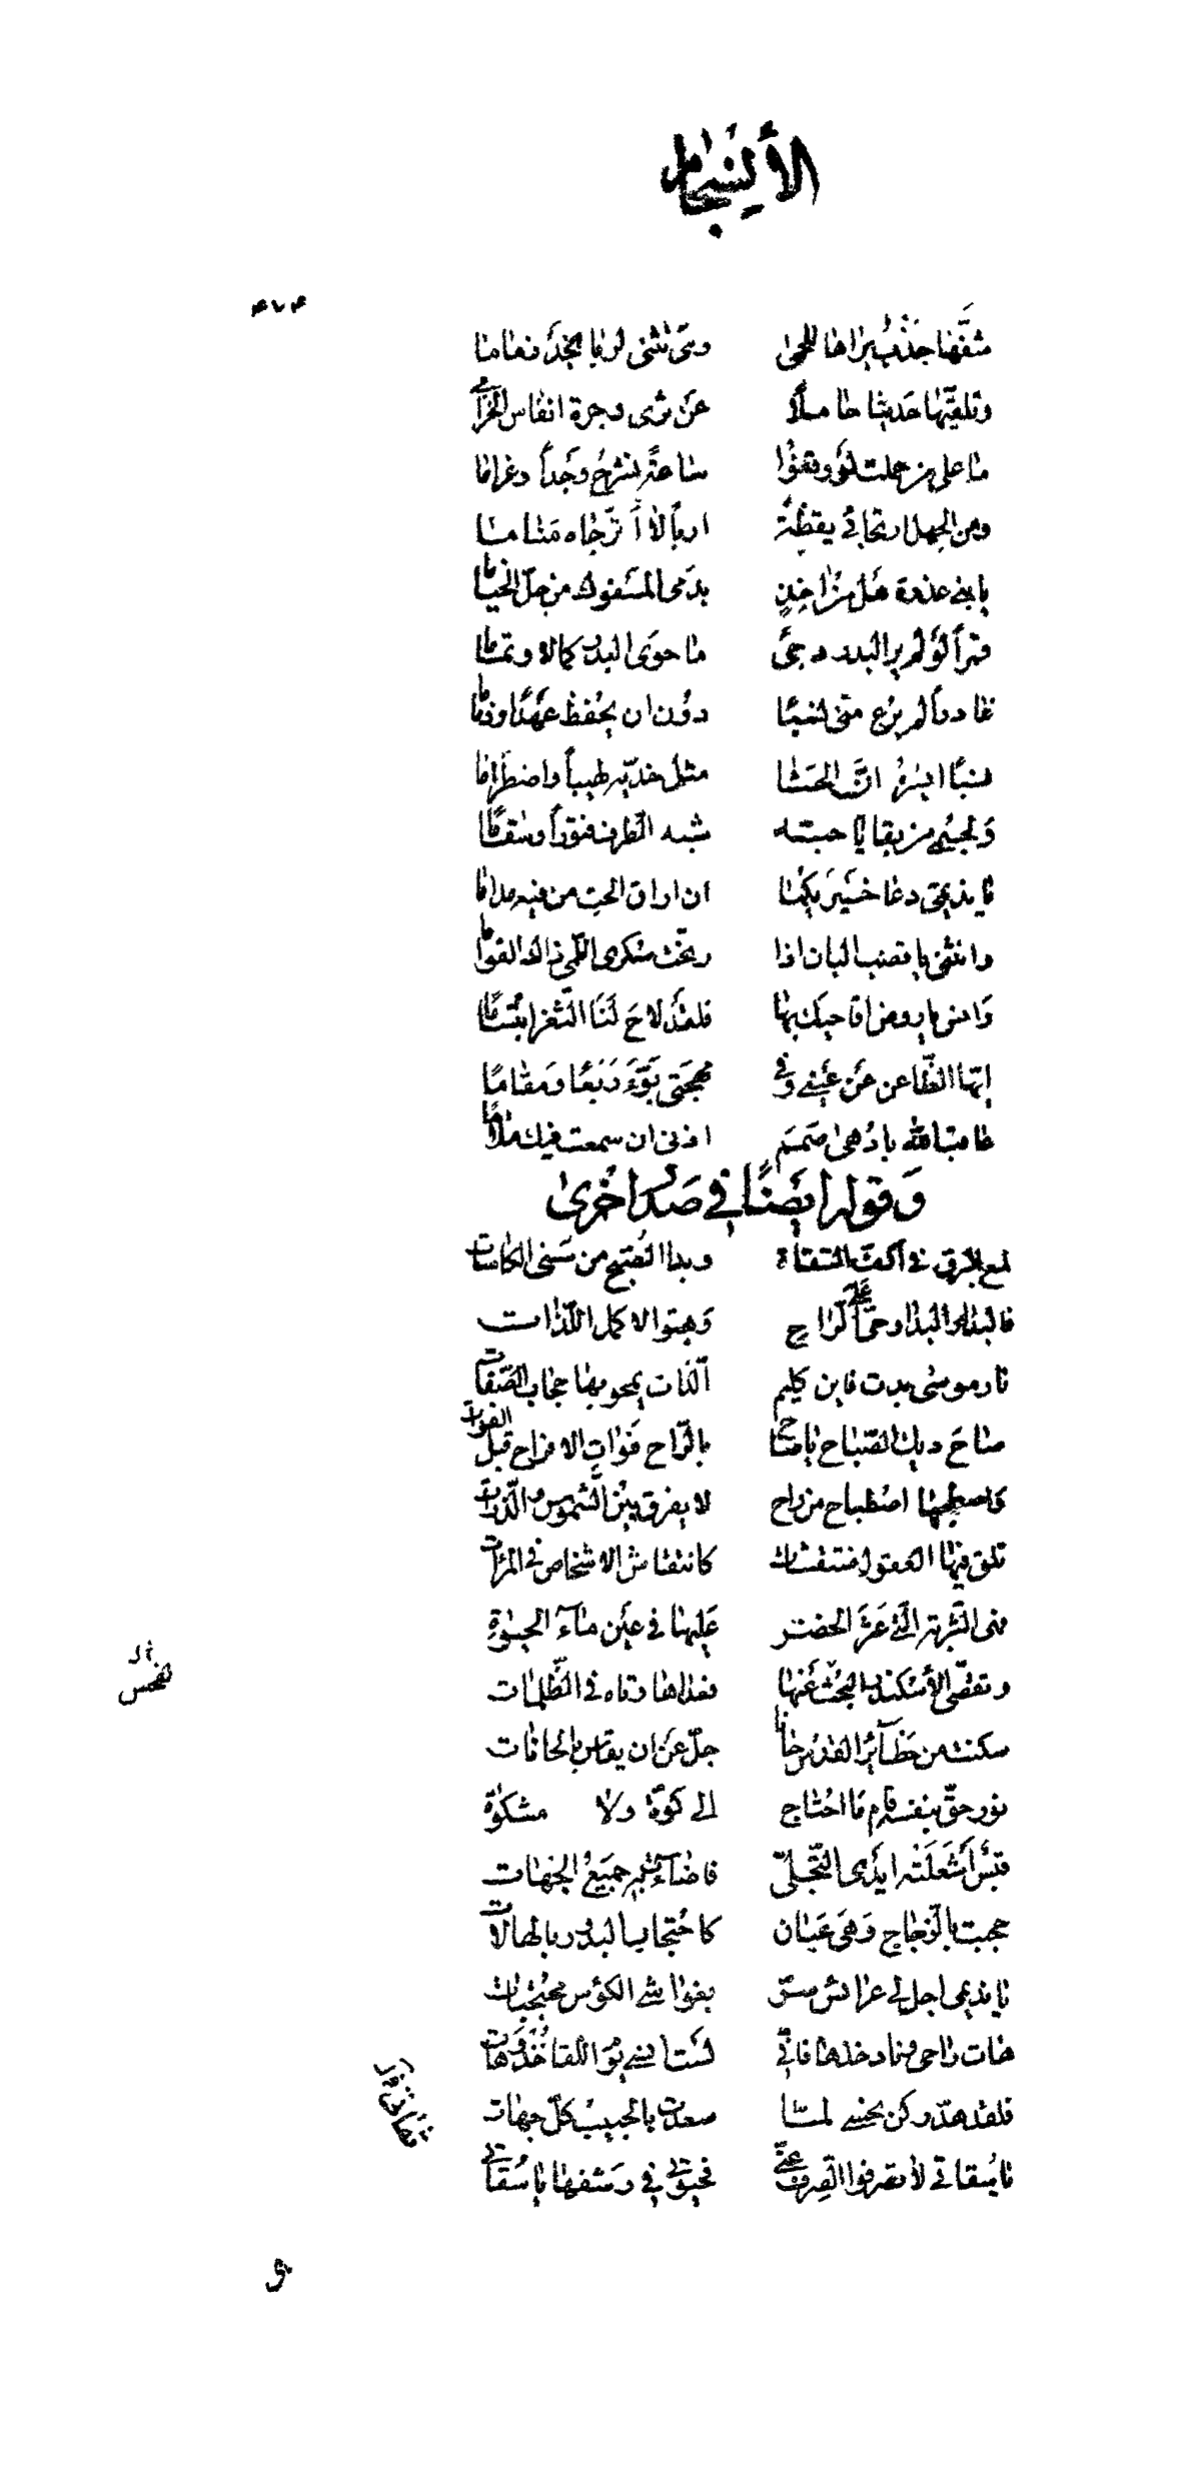 الأنسجام
شفّها جذب براها للحمى ومتى تثنى لربا نجد زماما
وتلقّتها حديثا حاملا عن ثرى وجرة انفاس الخزامى
ما على من حملت لو وقفوا ساعة نشرح وجدا وغراما
ومن الجهل ارتجائي يقظة اربا لا أترجاه مناما
يا بني عذرة هل من آخذ بدمى المسفوك من حلّ الخياما
قمرا لو لم ير البدر دجى ما حوى البدر كمالا وتماما
غادرا لم يرع متى نسبا دون ان يحفظ عهدا وذماما
نسبا ايسره انّ الحشا مثل خدّيه لهيبا واضطراما
وبجسمي من بقايا حبّه شبه الطرف فتورا وسقاما
يا نديمي دعا خمريكما ان اراق الحب من فيه مداما
وانثنى يا قضب البان اذا رنّحت سكرى اللمى ذاك القواما
وادعى يا روض اقاحيك بها فلقد لاح لنا الثغر ابتساما
ايّها الظاعن عن عيني وفي مهجتى بوّء ربعا ومقاما
عاقب الله بادهى صمم اذنى ان سمعت فيك ملاما
وقوله ايضا في صدر اخرى
لمع البرق في اكفّ السقاة وبدا الصبح من سنى الكاسات
فالبدار البدار حىّ على الراح وهبّوا لاكمل اللذات
نار موسى بدت فاين كليم الذات يمحو بها حجاب الصفات
صاح ديك الصباح يا صاح بالراح فوات الافراح قبل الفوات
واصطبحها اصطباح من راح لا يفرق بين الشموس والذرات
تلق فيها العقول منتقشات كانتقاش الاشخاص في المرآت
هى التّربة الّتي عثر الخضر عليها في عين ماء الحيوة
وتقصّى الأسكندر البحث عنها فعداها وتاه في الظّلمات
سكنت من حظائر القدس حانا جلّ عن ان يقاس بالحانات
نور حقّ بنفسه قام ما احتاج الى كوّة ولا مشكوة
قبس أشعلته ايدى التّجلّي فاضاءت به جميع الجهات
حجبت بالزجاج وهى عيان كاحتجاب البدر بالهالات
يا نديمى اجل لي عرائس سرّ بغواشي الكؤس محتجبات
هات راحى وهاد خذها فانّي لست انسى يوم اللقا خذ وهات
فلقد هدّ ركن نحسي لمّا سعدت بالحبيب كلّ جهات
يا سقاتي لا تصرفوا الصّرف عنّي فحيوتي في رشفها يا سقاتي